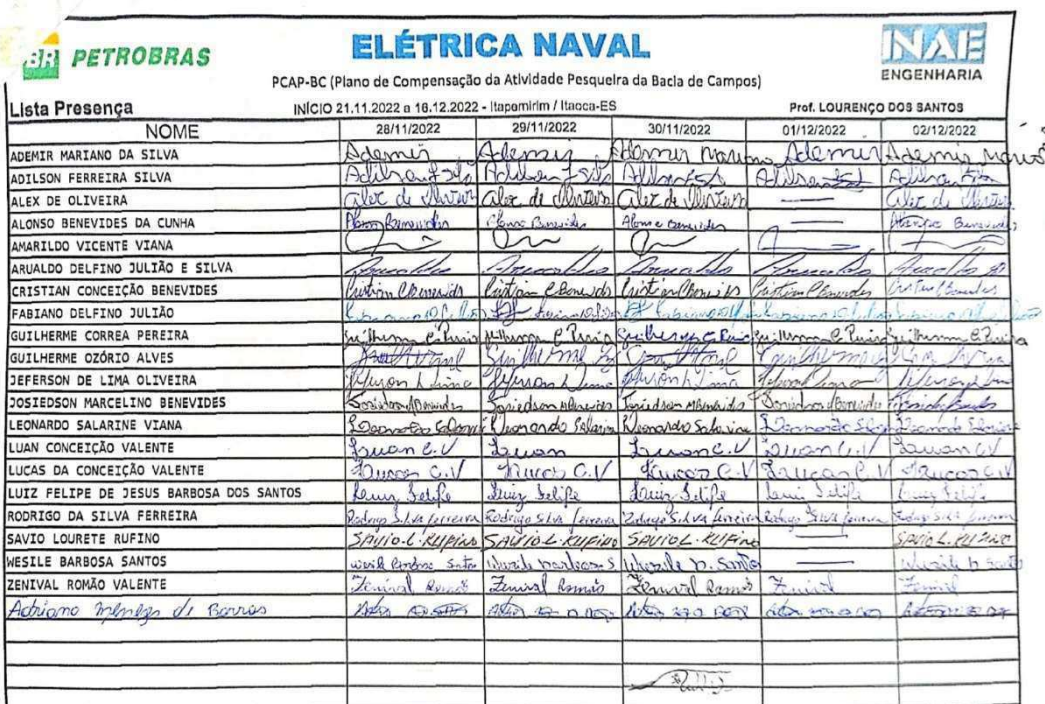 BR PETROBRAS
ELÉTRICA NAVAL
INAE
ENGENHARIA
PCAP-BC (Plano de Compensação da Atividade Pesqueira da Bacia de Campos)
Lista Presença INÍCIO 21.11.2022 a 16.12.2022 - Itapemirim / Itaoca-ES Prof. LOURENÇO DOS SANTOS
NOME 28/11/2022 29/11/2022 30/11/2022 01/12/2022 02/12/2022
ADEMIR MARIANO DA SILVA Ademir Ademir Ademir Mariano Ademir Ademir
ADILSON FERREIRA SILVA
ALEX DE OLIVEIRA Alex de Oliveira Alex de Oliveira Alex de Oliveira — Alex de Oliveira
ALONSO BENEVIDES DA CUNHA Alonso Benevides Alonso Benevides Alonso Benevides — Benevides
AMARILDO VICENTE VIANA
ARUALDO DELFINO JULIÃO E SILVA Arualdo Arualdo Arualdo Arualdo Arualdo
CRISTIAN CONCEIÇÃO BENEVIDES Cristian C Benevides Cristian C Benevides Cristian C Benevides Cristian C Benevides
FABIANO DELFINO JULIÃO
GUILHERME CORREA PEREIRA Guilherme C Pereira Guilherme C Pereira Guilherme C Pereira Guilherme C Pereira Guilherme C Pereira
GUILHERME OZÓRIO ALVES
JEFERSON DE LIMA OLIVEIRA Jeferson Lima Jeferson Lima Jeferson Lima
JOSIEDSON MARCELINO BENEVIDES Josiedson M Benevides Josiedson M Benevides Josiedson M Benevides Josiedson M Benevides
LEONARDO SALARINE VIANA Leonardo Salarine Leonardo Salarine Leonardo Salarine Leonardo Leonardo Salarine
LUAN CONCEIÇÃO VALENTE Luan C.V Luan Luan C.V Luan C.V Luan C.V
LUCAS DA CONCEIÇÃO VALENTE Lucas C.V Lucas C.V Lucas C.V Lucas C.V Lucas C.V
LUIZ FELIPE DE JESUS BARBOSA DOS SANTOS Luiz Felipe Luiz Felipe Luiz Felipe Luiz Felipe Luiz Felipe
RODRIGO DA SILVA FERREIRA Rodrigo Silva Ferreira Rodrigo Silva Ferreira Rodrigo Silva Ferreira Rodrigo Silva Ferreira Rodrigo Silva Ferreira
SAVIO LOURETE RUFINO SAVIO L. RUFINO SAVIO L. RUFINO SAVIO L. RUFINO — SAVIO L. RUFINO
WESILE BARBOSA SANTOS Wesile Barbosa Santos Wesile Barbosa S Wesile b. Santos — Wesile b Santos
ZENIVAL ROMÃO VALENTE Zenival Romão Zenival Romão Zenival Romão Zenival Zenival
Adriano Menezes de Barros